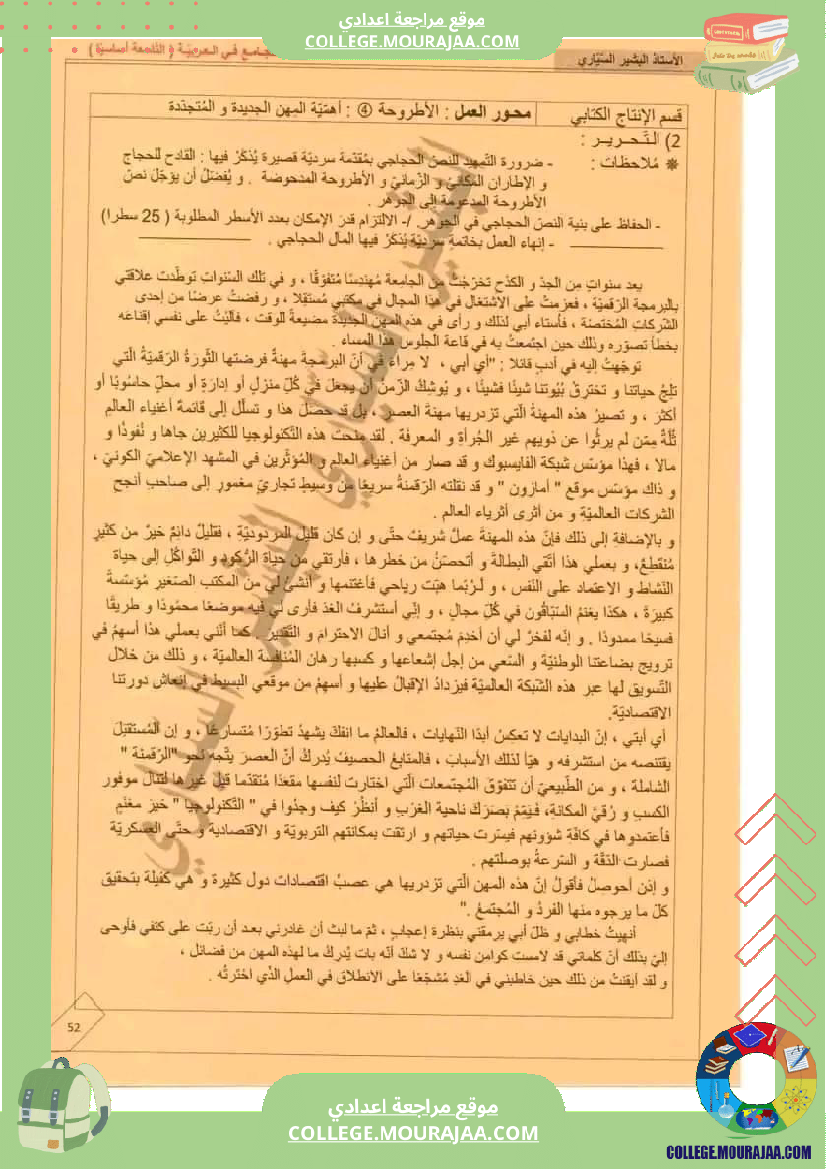 موقع مراجعة اعدادي
COLLEGE.MOURAJAA.COM
الأستاذ البشير السّيّاري
جامع في العربيّة ( التّاسعة أساسيّة )
قسم الإنتاج الكتابي
محور العمل : الأطروحة ④ : أهمّيّة المهن الجديدة و المُتجدّدة
2) التّحرير :
✵ مُلاحظات : - ضرورة التّمهيد للنصّ الحجاجي بمُقدّمة سرديّة قصيرة يُذكرُ فيها : القادح للحجاج
و الإطاران المكانيّ و الزّمانيّ و الأطروحة المدحوضة . و يُفضلُ أن يؤجّل نصّ
الأطروحة المدعومة إلى الجوهر .
- الحفاظ على بنية النصّ الحجاجي في الجوهر. /- الالتزام قدر الإمكان بعدد الأسطر المطلوبة ( 25 سطرا)
- إنهاء العمل بخاتمةٍ سرديّة يُذكرُ فيها المآل الحجاجي .
بعد سنواتٍ من الجدّ و الكدّح تخرّجتُ من الجامعة مُهندسًا مُتفوّقًا ، و في تلك السّنواتِ توطّدت علاقتي
بالبرمجة الرّقميّة ، فعزمتُ على الاشتغال في هذا المجال في مكتبي مُستقِلّا ، و رفضتُ عرضًا من إحدى
الشّركاتِ المُختصّة ، فأستاء أبي لذلك و رأى في هذه المهن الجديدة مضيعةً للوقت ، فآليْتُ على نفسي إقناعَه
بخطأ تصوّره وذلك حين اجتمعتُ به في قاعة الجلوس هذا المساء .
توجّهتُ إليه في أدبٍ قائلا : "أي أبي ، لا مِراءَ في أنّ البرمجةَ مهنةٌ فرضتها الثّورةُ الرّقميّةُ الّتي
تلِجُ حياتنا و تخترقُ بُيُوتنا شيئًا فشيئًا ، و يُوشِكُ الزّمنُ أن يجعلَ في كُلّ منزلٍ أو إدارةٍ أو محلّ حاسُوبًا أو
أكثرَ ، و تصيرُ هذه المهنةُ الّتي تزدريها مهنةَ العصرِ ، بل قد حصلَ هذا و تسلّل إلى قائمة أغنياء العالم
ثُلّةٌ ممّن لم يرثُوا عن ذويهم غير الجُرأةِ و المعرفة . لقد منحت هذه التّكنولوجيا للكثيرين جاها و نُفوذًا و
مالًا ، فهذا مؤسّس شبكة الفايسبوك و قد صار من أغنياء العالم و المُؤثّرين في المشهد الإعلاميّ الكونيّ ،
و ذاك مؤسّس موقع " أمازون " و قد نقلته الرّقمنةُ سريعًا من وسيطٍ تجاريّ مغمورٍ إلى صاحبِ أنجح
الشركات العالميّةِ و من أثرى أثرياء العالم .
و بالإضافةِ إلى ذلك فإنّ هذه المهنةَ عملٌ شريفٌ حتّى و إن كان قليلَ المردوديّةِ ، فقليلٌ دائمٌ خيرٌ من كثيرٍ
مُنقطِعٍ، و بعملي هذا أتّقي البطالةَ و أتحصّنُ من خطرها ، فأرتقي من حياةِ الرُّكودِ و التّواكُلِ إلى حياة
النّشاط و الاعتماد على النّفس ، و لربّما هبّت رياحي فأغتنمها و أنشئُ لي من المكتب الصّغيرِ مُؤسّسةً
كبيرةً ، هكذا يغنمُ السّبّاقون في كُلّ مجالٍ ، و إنّي أستشرفُ الغدَ فأرى لي فيه موضعًا محمُودًا و طريقًا
فسيحًا ممدودًا . و إنّه لفخرٌ لي أن أخدِمَ مُجتمعي و أنالَ الاحترامَ و التّقديرَ . كما أنّني بعملي هذا أسهمُ في
ترويج بضاعتنا الوطنيّة و السّعي من أجل إشعاعها و كسبها رهان المُنافسة العالميّة ، و ذلك من خلال
التّسويق لها عبر هذه الشّبكة العالميّة فيزدادُ الإقبالُ عليها و أسهمُ من موقعي البسيط في إنعاش دورتنا
الاقتصاديّة.
أي أبتي ، إنّ البدايات لا تعكِسُ أبدًا النّهايات ، فالعالمُ ما انفكّ يشهدُ تطوّرًا مُتسارعًا ، و إن المُستقبلَ
يقتنصه من استشرفه و هيّأ لذلك الأسبابَ ، فالمتابعُ الحصيفُ يُدركُ أنّ العصرَ يتّجه نحو "الرّقمنة "
الشاملة ، و من الطّبيعيّ أن تتفوّقَ المُجتمعات الّتي اختارت لنفسها مقعدًا مُتقدّما قبل غيرها لتنال موفور
الكسبِ و رُقيّ المكانةِ، فيَمّمْ بصَرَكَ ناحية الغرْبِ و أنظُرْ كيف وجدُوا في " التّكنولوجيا " خيرَ مغنَمٍ
فأعتمدوها في كافّة شؤونهم فيسّرت حياتهم و ارتقت بمكانتهم التربويّة و الاقتصادية و حتّى العسكريّة
فصارت الدّقّة و السّرعةُ بوصلتهم .
و إذن أحوصلُ فأقولُ إنّ هذه المهن الّتي تزدريها هي عصبُ اقتصاداتِ دول كثيرة و هي كفيلة بتحقيق
كلّ ما يرجوه منها الفردُ و المُجتمعُ ."
أنهيتُ خطابي و ظلّ أبي يرمقني بنظرة إعجابٍ ، ثمّ ما لبث أن غادرني بعد أن ربّت على كتفي فأوحى
إليّ بذلك أنّ كلماتي قد لامست كوامن نفسه و لا شكّ أنّه بات يُدركُ ما لهذه المهن من فضائل ،
و لقد أيقنتُ من ذلك حين خاطبني في الغدِ مُشجّعًا على الانطلاق في العملِ الّذي اخترتُه .
52
موقع مراجعة اعدادي
COLLEGE.MOURAJAA.COM
COLLEGE.MOURAJAA.COM